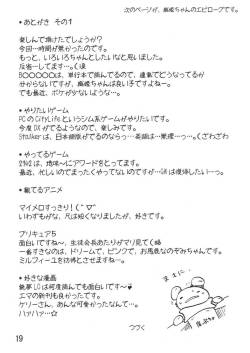 次のページが、麻暖ちゃんのエピローグです。
・あとがき その1
楽しんで頂けたでしょうか?
今回一時間が勝負でした。
もっと、いろいろちゃんとしたいなと思いました。
反省…してます…<涙
BOOOOOは、単行本で揃んでるので、連載でどうなってるか
分からないですけど、麻暖ちゃんは良い子ですよねー。
でも最近、ボケが少ないようなっ…
・やりたいゲーム
PCのCityLifeというシム系ゲームがやりたいです。
今度DXがでるようなので、楽しみです。
Stalkerは、日本語版がでるのなら…英語は…無理っ…くざわざわ
・やってるゲーム
2142は、地味~にアワードをとってます。
最近、忙しいのでまったくやってないですが…GWは復帰したい…
・観てるアニメ
マイメロすっきり!(*´∀`*)
いわずもがな、凡は短くなりましたが、好きです。
プリキュア5
面白いですね~、生徒会長あたりがマリ見てく略
一番すきなのは、ドリームで、ピンクで、お馬鹿なのぞみちゃんです。
ミルフィーユを彷彿とさせますね…。
・好きな漫画
銃夢LOは何度読んでも面白いです~
エマの新刊も良かったです。
ケリーさん、あんな可愛かったなんて…
ハァハァ…☆
つづく
19